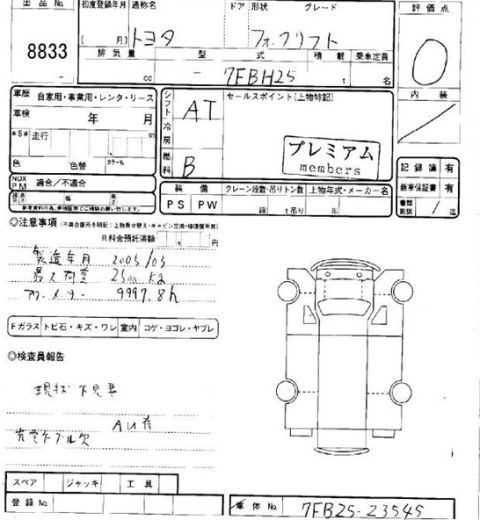 出品 No. 初度登録年月 通称名 ドア 形状 グレード 評価点
8833 [ 月] トヨタ フォークリフト 0
排気量 型式 積載 乗車定員
cc - 7FBH25 t 名 内装
車歴 自家用・事業用・レンタ・リース シフト AT セールスポイント(上物特記)
車検 年 月 冷房
走行 燃料 B プレミアム
members
色 色替 カラーNo. 記録簿 有
NOX PM 適合/不適合 装備 クレーン段数・吊りトン数 上物年式・メーカー名 新車保証書 有
PS PW 段 t吊り 年 書類期限 / 迄
◎注意事項
R料金預託済額 円
製造年月 2005/03
最大荷重 2500 kg
アワーメーター 9997.8h
Fガラス トビ石・キズ・ワレ 室内 コゲ・ヨゴレ・ヤブレ
◎検査員報告
現状
AU有
充電ケーブル欠
スペア ジャッキ 工具
登録 No. 車体 No. 7FB25-23545